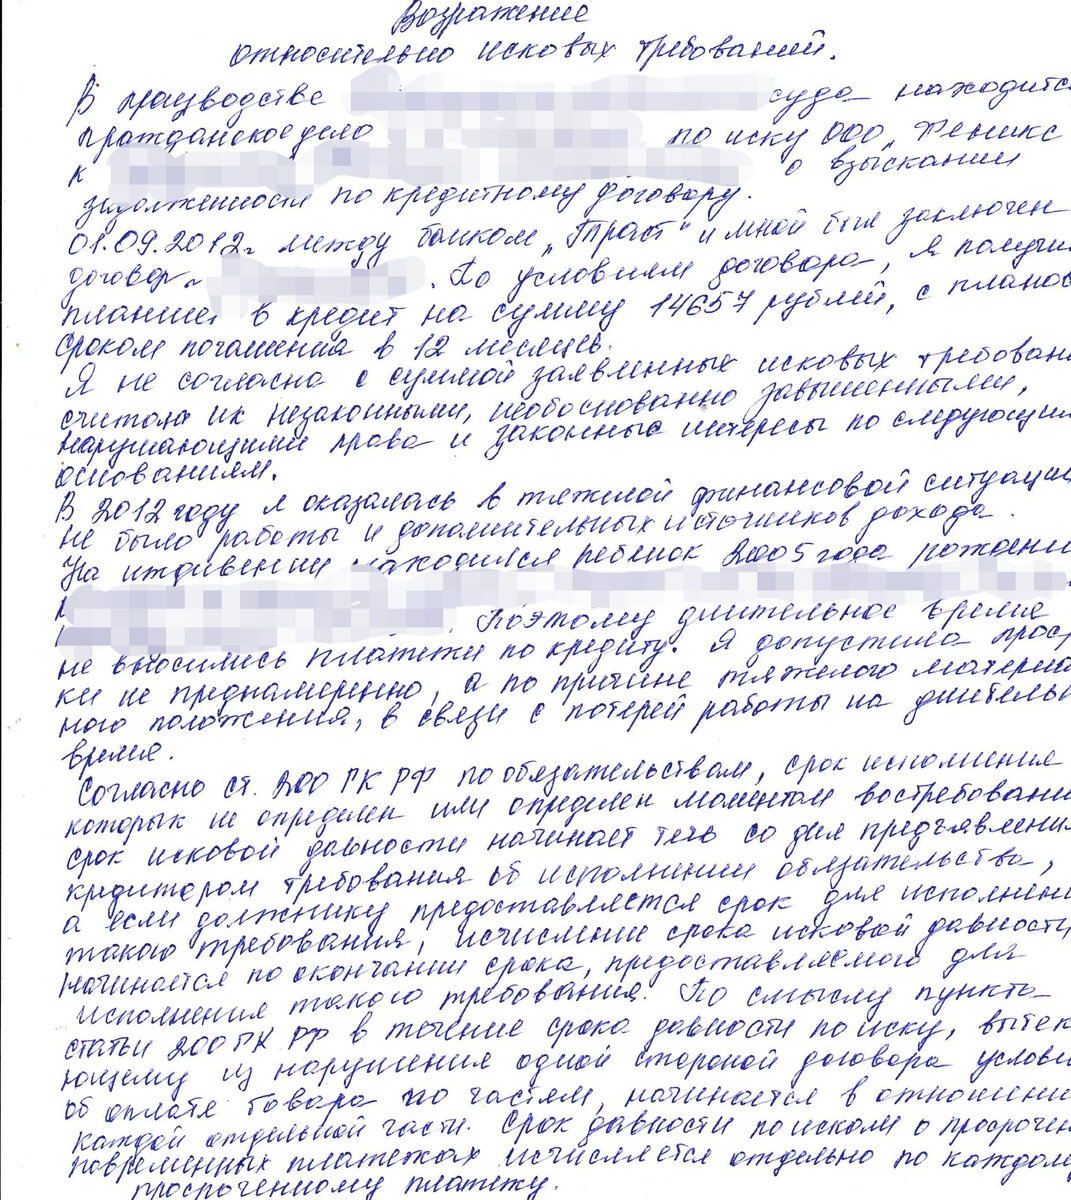 Возражение
относительно исковых требований.
В производстве суда находится
гражданское дело по иску ООО „Феникс
к о взыскании
задолженности по кредитному договору.
01.09.2012г между банком „Траст" и мной был заключен
договор . По условиям договора, я получил
планшет в кредит на сумму 14657 рублей, с планов
сроком погашения в 12 месяцев.
Я не согласна с суммой заявленных исковых требован
считаю их незаконными, необоснованно завышенными,
нарушающими права и законные интересы по следующим
основаниям.
В 2012 году я оказалась в тяжелой финансовой ситуации
не было работы и дополнительных источников дохода.
На иждивении находился ребенок 2005 года рождени
. Поэтому длительное время
не вносились платежи по кредиту. Я допустила прос
ки не преднамеренно, а по причине тяжелого материа
ного положения, в связи с потерей работы на длитель
время.
Согласно ст. 200 ГК РФ по обязательствам, срок исполнения
которых не определен или определен моментом востребовани
срок исковой давности начинает течь со дня предъявления
кредитором требования об исполнении обязательства,
а если должнику предоставляется срок для исполнени
такого требования, исчисление срока исковой давности
начинается по окончании срока, предоставляемого для
исполнения такого требования. По смыслу пункта
статьи 200 ГК РФ в течение срока давности по иску, вытек
ющему из нарушения одной стороной договора услови
об оплате товара по частям, начинается в отношении
каждой отдельной части. Срок давности по искам о просрочен
повременных платежах исчисляется отдельно по каждому
просроченному платежу.